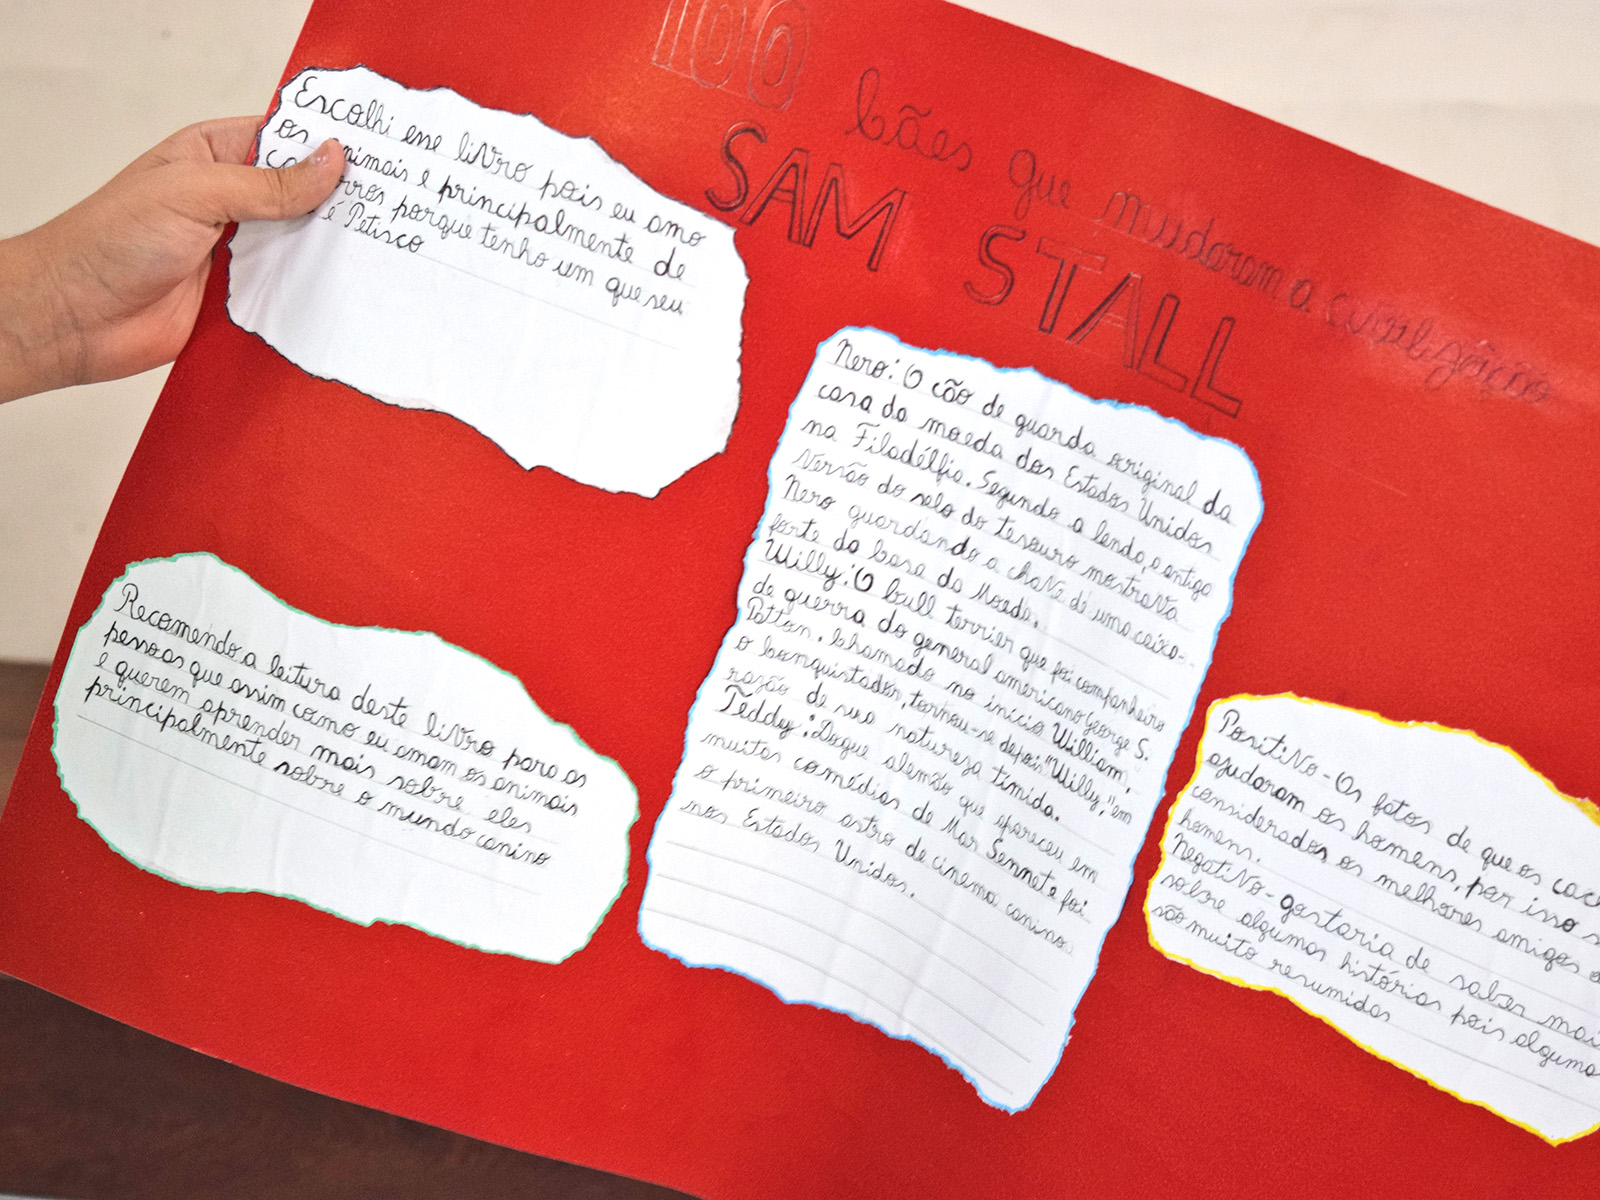 100 cães que mudaram a civilização
SAM STALL
Escolhi esse livro pois eu amo
os animais e principalmente de
porque tenho um que seu
é Petisco
Recomendo a leitura deste livro para as
pessoas que assim como eu amam os animais
e querem aprender mais sobre eles
principalmente sobre o mundo canino
Nero: O cão de guarda original da
casa da moeda dos Estados Unidos
na Filadélfia. Segundo a lenda, a antiga
versão do selo do tesouro mostrava
Nero guardando a chave de uma caixa-
forte da base da Moeda.
Willy: O bull terrier que foi companheiro
de guerra do general americano George S.
Patton. Chamado no início William,
o Conquistador, tornou-se depois "Willy," em
razão de sua natureza tímida.
Teddy: Dogue alemão que apareceu em
muitas comédias de Mar Sennet e foi
o primeiro astro de cinema canino
nos Estados Unidos.
Positivo - Os fatos de que os
ajudaram os homens, por isso
considerados os melhores amigos
homens.
Negativo - gostaria de saber mais
sobre algumas histórias pois alguma
são muito resumidas